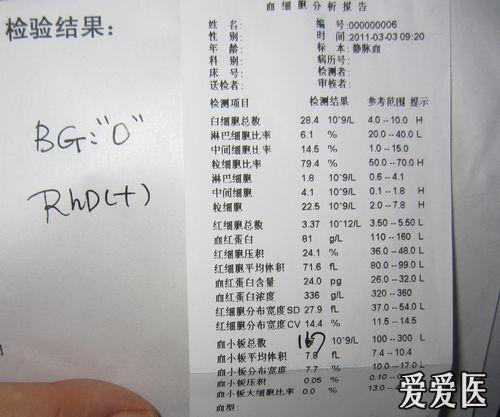 检验结果：
BG:"O"
RhD(+)
血细胞分析报告
姓名: 编号:000000006
性别: 时间:2011-03-03 09:20
年龄: 标本:静脉血
科别: 病历号:
床号: 检测者:
送检者: 审核者:
检测项目 检测结果 参考范围 提示
白细胞总数 28.4 10^9/L 4.0--10.0 H
淋巴细胞比率 6.1 % 20.0--40.0 L
中间细胞比率 14.5 % 1.0--15.0
粒细胞比率 79.4 % 50.0--70.0 H
淋巴细胞 1.8 10^9/L 0.6--4.1
中间细胞 4.1 10^9/L 0.1--1.8 H
粒细胞 22.5 10^9/L 2.0--7.8 H
红细胞总数 3.37 10^12/L 3.50--5.50 L
血红蛋白 81 g/L 110--160 L
红细胞压积 24.1 % 36.0--48.0 L
红细胞平均体积 71.6 fL 80.0--99.0 L
血红蛋白含量 24.0 pg 26.0--32.0 L
血红蛋白浓度 336 g/L 320--360
红细胞分布宽度SD 27.9 fL 37.0--54.0 L
红细胞分布宽度CV 14.4 % 11.5--14.5
血小板总数 167 10^9/L 100--300 L
血小板平均体积 7.8 fL 7.4--10.4
血小板分布宽度 7.7 % 10.0--17.0 L
血小板压积 0.05 % 0.10
血小板大细胞比率 0.0 % 13.0
血型:
爱爱医